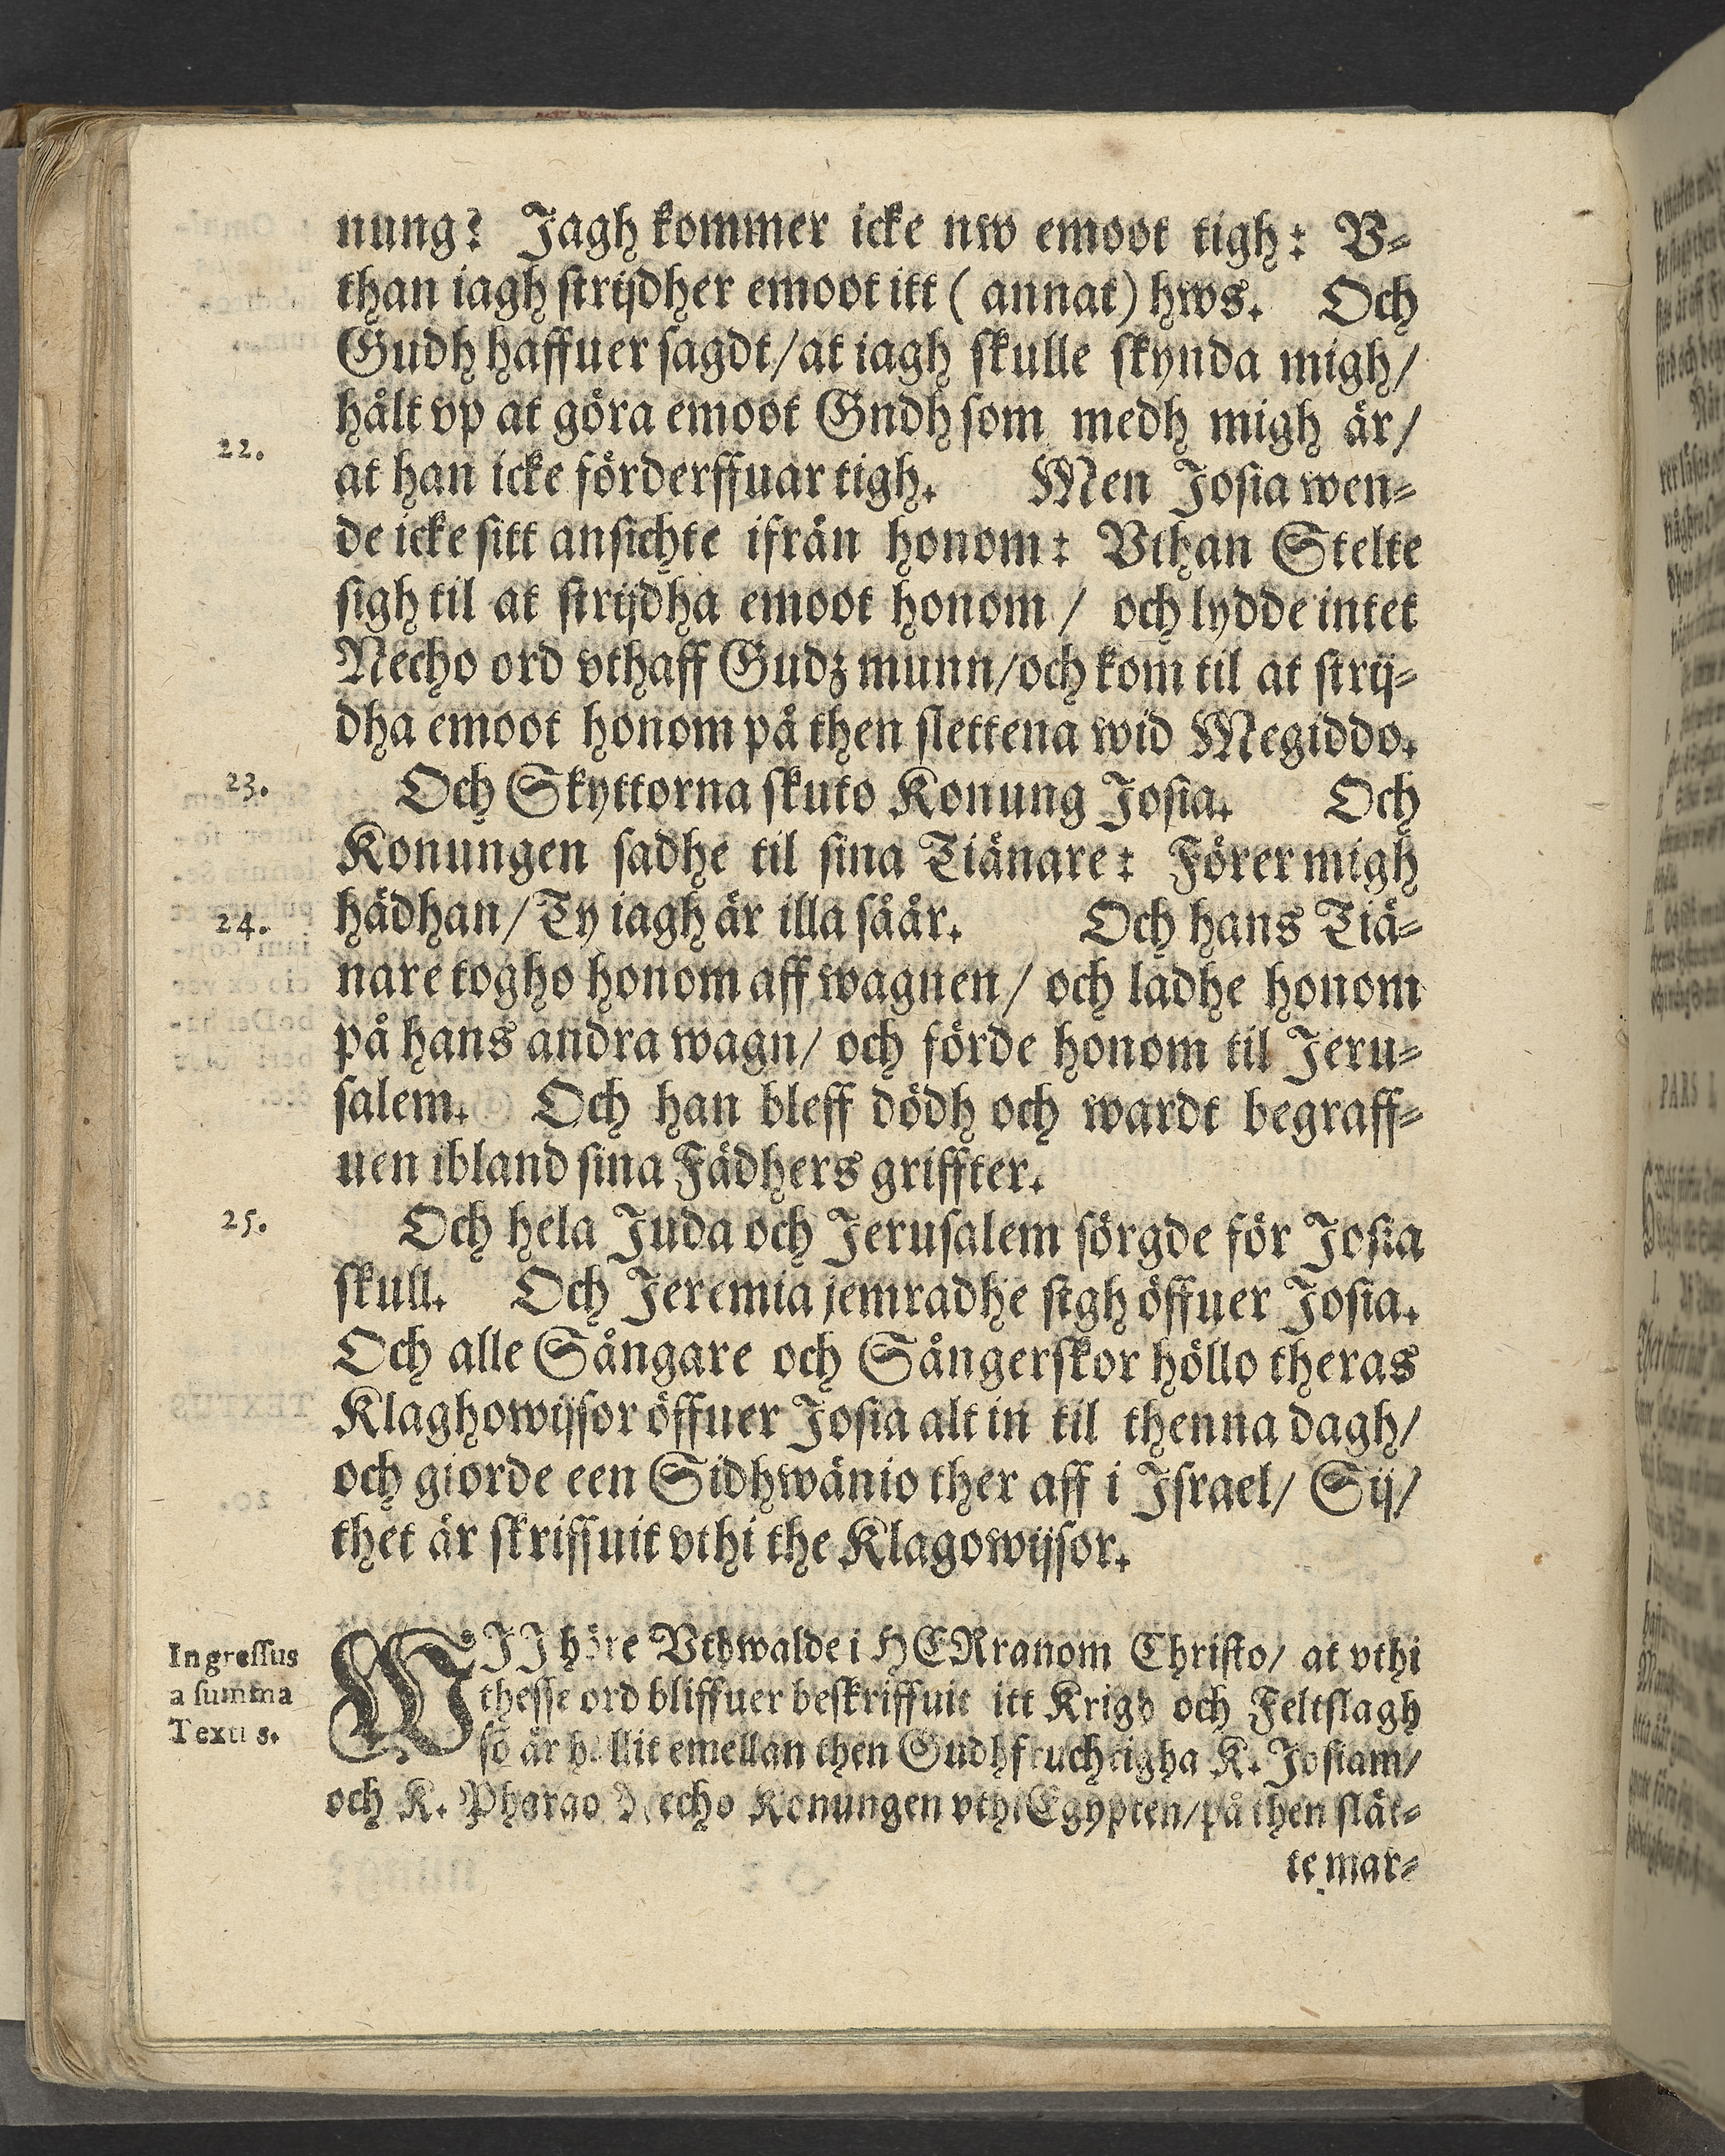 nung? Jagh kommer icke nw emoot tigh: V-
than iagh strijdher emoot itt (annat) hws. Och
Gudh haffuer sagdt/ at iagh skulle skynda migh/
hålt vp at göra emoot Gndh som medh migh är/
22.
at han icke förderffuar tigh. Men Josia wen-
de icke sitt ansichte ifrån honom: Vthan Stelte
sigh til at strijdha emoot honom/ och lydde intet
Necho ord vthaff Gudz munn/ och kom til at strij-
dha emoot honom på then slettena wid Megiddo.
23. Och Skyttorna skuto Konung Josia. Och
Konungen sadhe til sina Tiänare: Förer migh
24. hädhan/ Ty iagh är illa såår. Och hans Tiä-
nare togho honom aff wagnen/ och lädhe honom
på hans andra wagn/ och förde honom til Jeru-
salem. Och han bleff dödh och wardt begraff-
uen ibland sina Fädhers griffter.
25. Och hela Juda och Jerusalem sörgde för Josia
skull. Och Jeremia jemradhe sigh öffuer Josia.
Och alle Sångare och Sångerskor höllo theras
Klaghowijsor öffuer Josia alt in til thenna dagh/
och giorde een Sidhwänio ther aff i Israel/ Sij/
thet är skriffuit vthi the Klagowijsor.
Ingressus
a summa
Textus.
WIJ höre Vthwalde i HERranom Christo/ at vthi
thesse ord bliffuer beskriffuit itt Krigh och Feltslagh
so är hållit emellan then Gudhfruchtigha K. Josiam/
och K. Pharao Necho Konungen vthi Egypten/ på then slät-
te mar-